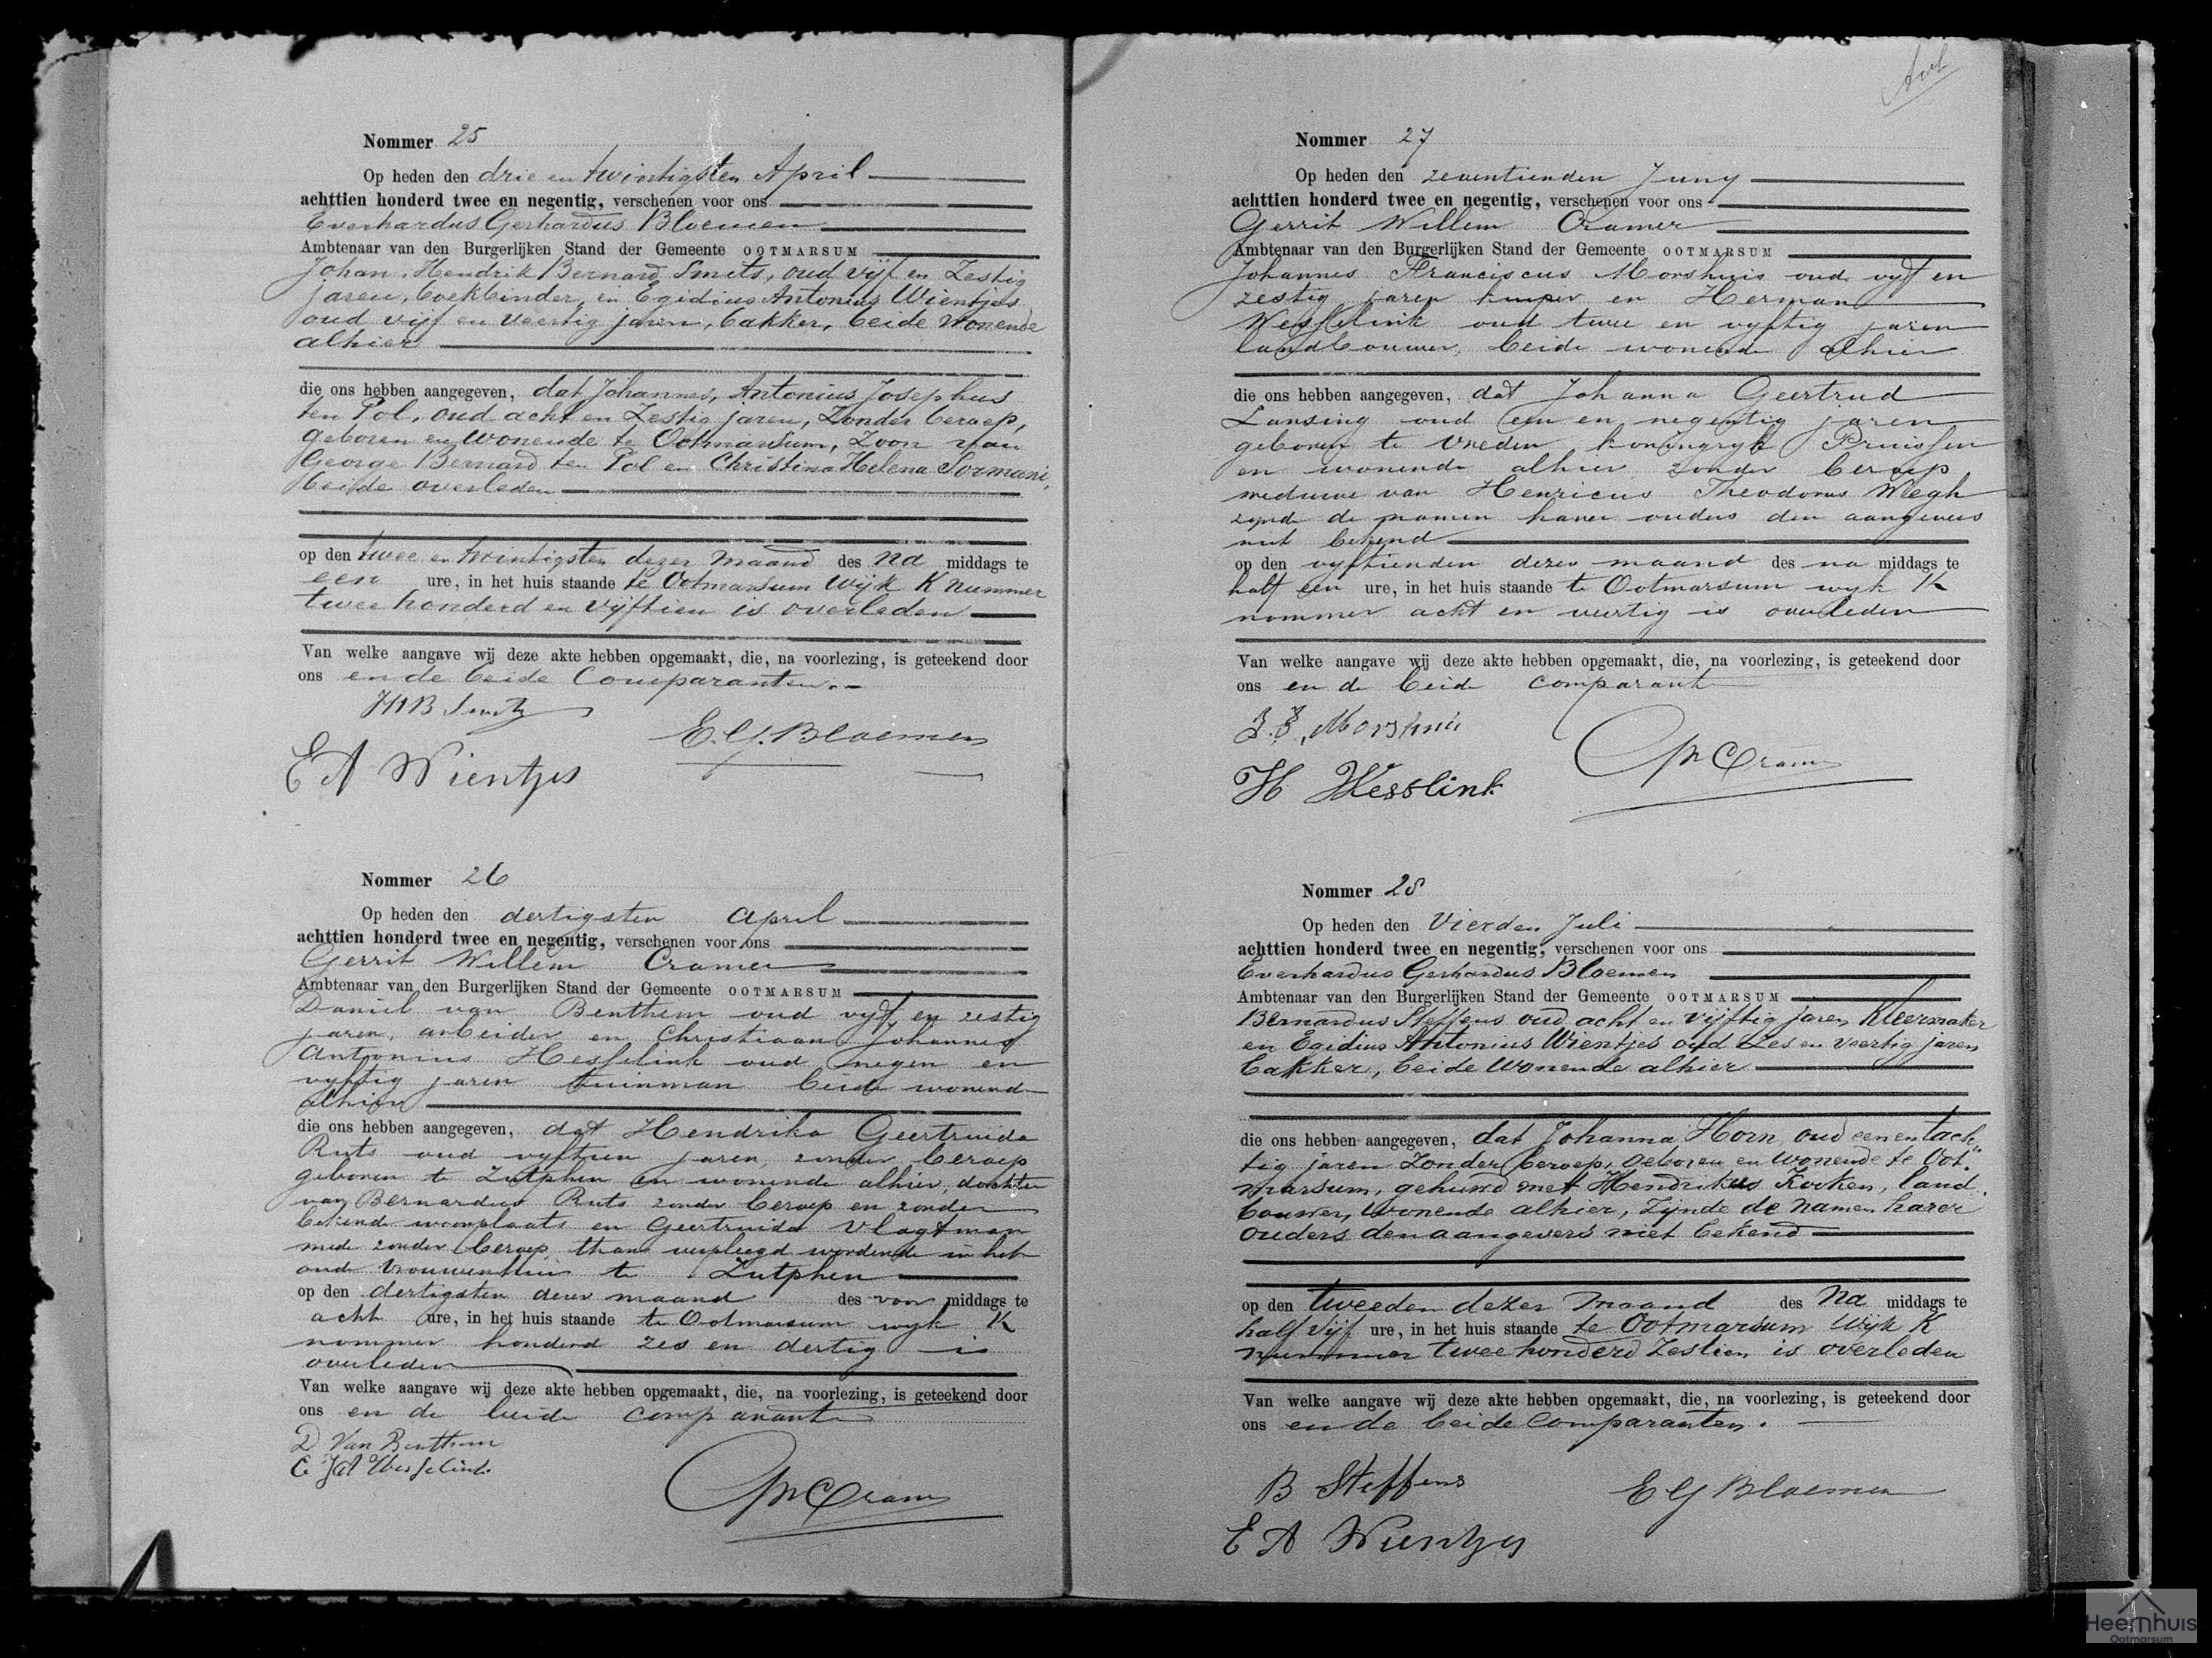 Nommer 25
Op heden den drie en twintigsten April
achttien honderd twee en negentig, verschenen voor ons
Everhardus Gerhardus Bloemen
Ambtenaar van den Burgerlijken Stand der Gemeente OOTMARSUM
Johan Hendrik Bernard Smits, oud vijf en Zestig
jaren, boekbinder, en Egidius Antonius Wientjes
oud vijf en Veertig jaren, bakker, beide wonende
alhier
die ons hebben aangegeven, dat Johannes, Antonius Josephus
ten Pol, oud acht en Zestig jaren, Zonder beroep,
geboren en wonende te Ootmarsum, Zoon van
George Bernard ten Pol en Christina Helena Sormani,
beide overleden
op den twee en twintigsten dezer maand des na middags te
een ure, in het huis staande te Ootmarsum Wijk K nummer
twee honderd en vijftien is overleden
Van welke aangave wij deze akte hebben opgemaakt, die, na voorlezing, is geteekend door
ons en de beide Comparanten.
JHB Smits
E. G. Bloemen
E A Wientjes
Nommer 26
Op heden den dertigsten April
achttien honderd twee en negentig, verschenen voor ons
Gerrit Willem Cramer
Ambtenaar van den Burgerlijken Stand der Gemeente OOTMARSUM
Daniel van Benthem oud vyf en zestig
jaren, arbeider en Christiaan Johannes
Antonius Hesselink oud negen en
vyftig jaren tuinman beide wonende
alhier
die ons hebben aangegeven, dat Hendrika Geertruida
Ruts oud vyftien jaren, zonder beroep
geboren te Zutphen en wonende alhier, dochter
van Bernardus Ruts zonder beroep en zonder
bekende woonplaats en Geertruida Vlagtman
mede zonder beroep thans verpleegd wordende in het
oude Vrouwenhuis te Zutphen
op den dertigsten dezer maand des voor middags te
acht ure, in het huis staande te Ootmarsum wyk K
nommer honderd zes en dertig is
overleden
Van welke aangave wij deze akte hebben opgemaakt, die, na voorlezing, is geteekend door
ons en de beide comparanten
D Van Benthem
C J A Hesselink
GW Cramer
Nommer 27
Op heden den zeventienden Juny
achttien honderd twee en negentig, verschenen voor ons
Gerrit Willem Cramer
Ambtenaar van den Burgerlijken Stand der Gemeente OOTMARSUM
Johannes Franciscus Morshuis oud vyf en
zestig jaren kuiper en Herman
Wesselink oud twee en vyftig jaren
landbouwer, beide wonende alhier
die ons hebben aangegeven, dat Johanna Geertrud
Lansing oud een en negentig jaren
geboren te Vreden koningryk Pruissen
en wonende alhier zonder beroep
weduwe van Henricus Theodorus Weegh
zynde de namen harer ouders den aangevers
niet bekend
op den vyftienden dezer maand des na middags te
half een ure, in het huis staande te Ootmarsum wyk K
nommer acht en veertig is overleden
Van welke aangave wij deze akte hebben opgemaakt, die, na voorlezing, is geteekend door
ons en de beide comparanten
J. F. Morshuis
GW Cramer
H Wesslink
Nommer 28
Op heden den Vierden Juli
achttien honderd twee en negentig, verschenen voor ons
Everhardus Gerhardus Bloemen
Ambtenaar van den Burgerlijken Stand der Gemeente OOTMARSUM
Bernardus Steffens oud acht en Vijftig jaren Kleermaker
en Egidius Antonius Wientjes oud Zes en veertig jaren
bakker, beide Wonende alhier
die ons hebben aangegeven, dat Johanna Horn, oud een en tach„
tig jaren Zonder beroep, geboren en wonende te Oot„
marsum, gehuwd met Hendrikus Kocken, land„
bouwer, wonende alhier, Zijnde de namen harer
ouders den aangevers niet bekend
op den tweeden dezer maand des Na middags te
half vijf ure, in het huis staande te Ootmarsum Wijk K
nummer twee honderd Zestien is overleden
Van welke aangave wij deze akte hebben opgemaakt, die, na voorlezing, is geteekend door
ons en de beide Comparanten.
B Steffens
E G Bloemen
E A Wientjes
Heemhuis
Ootmarsum